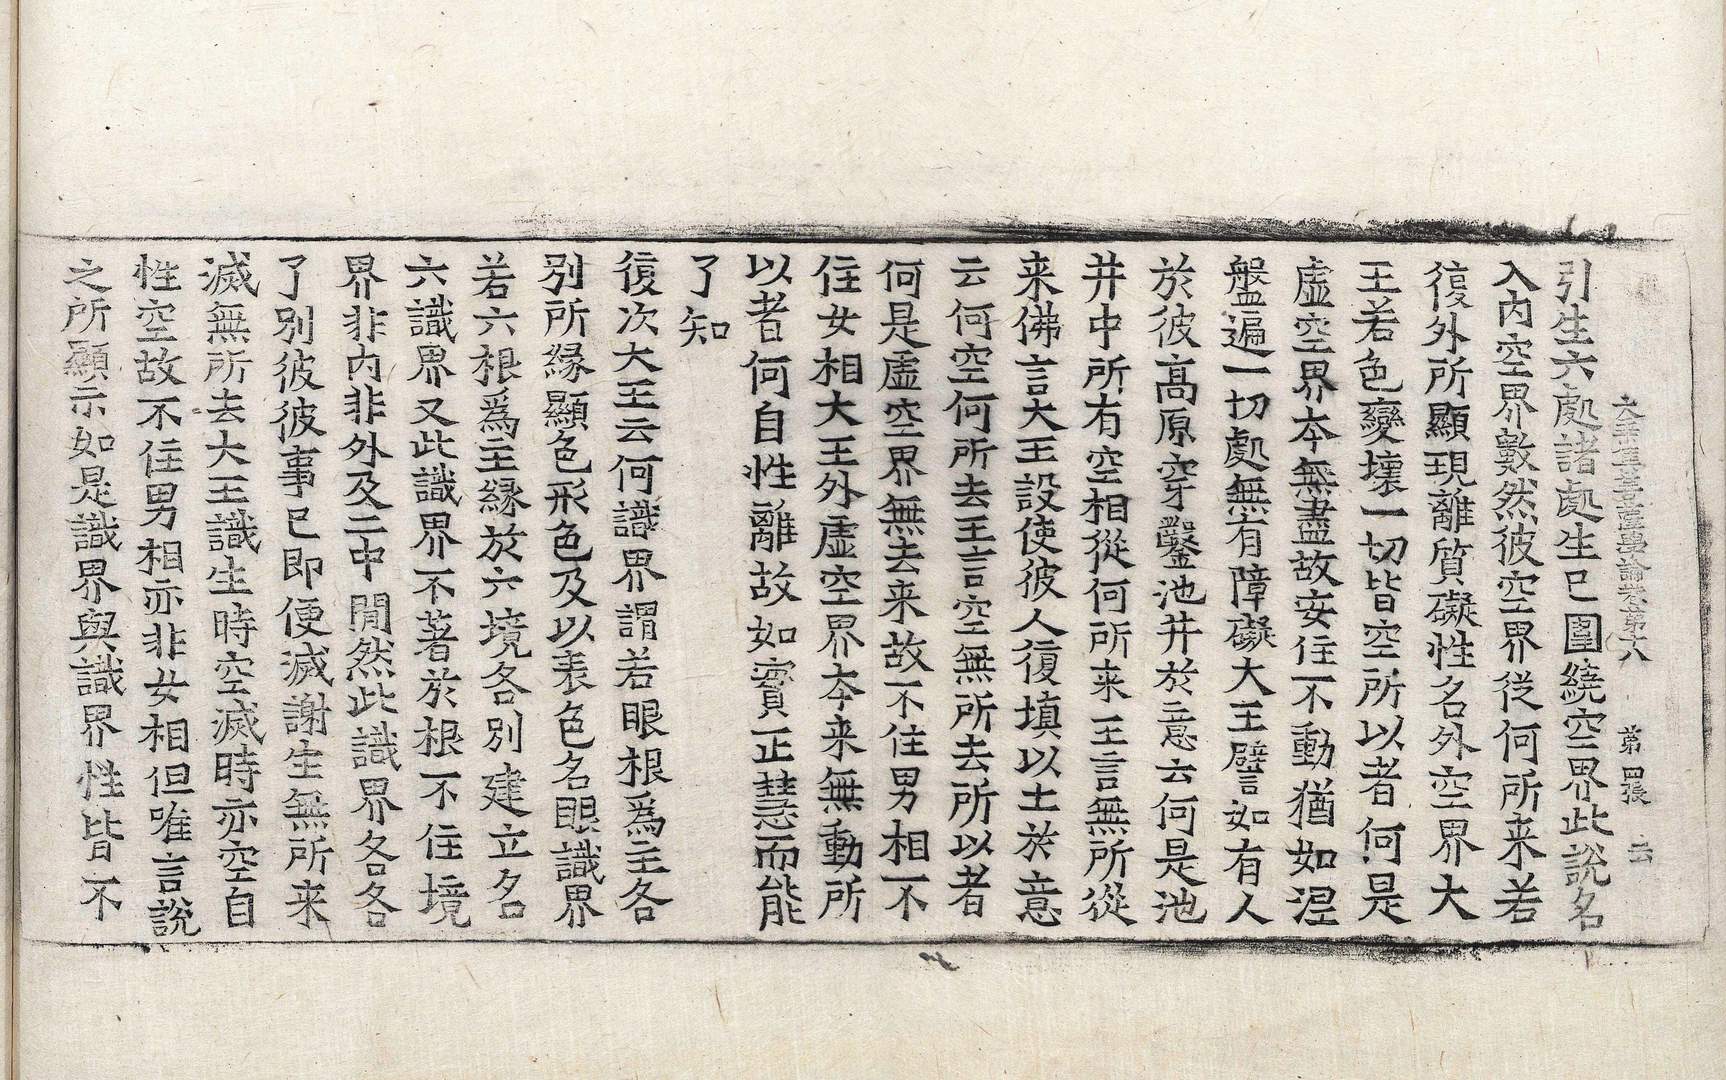 大乘集菩薩學論卷第十八　第四張　云
引生六處諸處生已圍繞空界此說名
入內空界數然彼空界從何所来若
復外所顯現離質礙性名外空界大
王若色變壞一切皆空所以者何是
虛空界本無盡故安住不動猶如涅
盤遍一切處無有障礙大王譬如有人
於彼高原穿鑿池井於意云何是池
井中所有空相從何所来王言無所從
来佛言大王設使彼人復填以土於意
云何空何所去王言空無所去所以者
何是虛空界無去来故不住男相不
住女相大王外虛空界本来無動所
以者何自性離故如實正慧而能
了知
復次大王云何識界謂若眼根為主各
別所緣顯色形色及以表色名眼識界
若六根為主緣於六境各別建立名
六識界又此識界不著於根不住境
界非內非外及二中間然此識界各各
了別彼彼事已即便滅謝生無所来
滅無所去大王識生時空滅時亦空自
性空故不住男相亦非女相但唯言說
之所顯示如是識界與識界性皆不